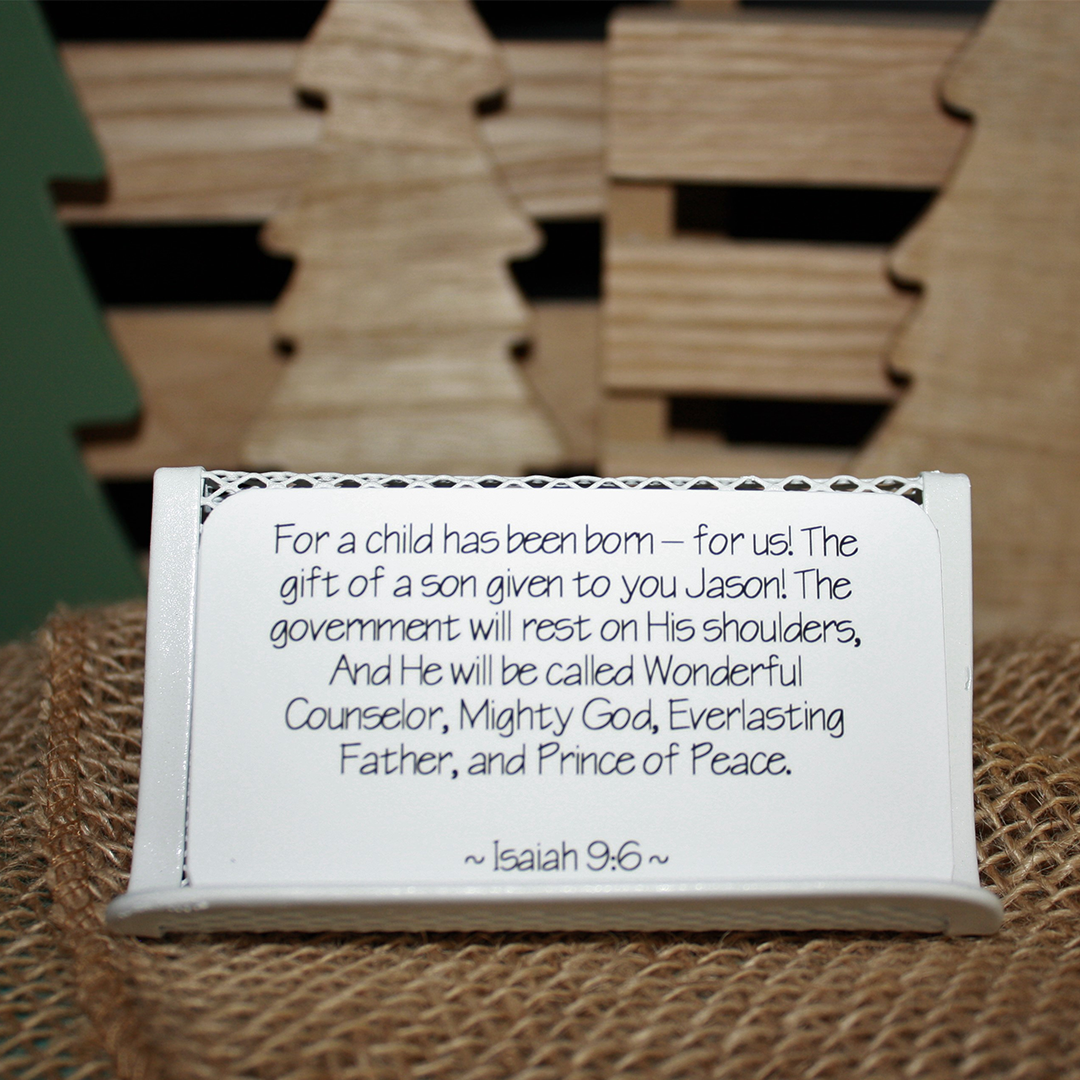 For a child has been born – for us! The
gift of a son given to you Jason! The
government will rest on His shoulders,
And He will be called Wonderful
Counselor, Mighty God, Everlasting
Father, and Prince of Peace.
~ Isaiah 9:6 ~